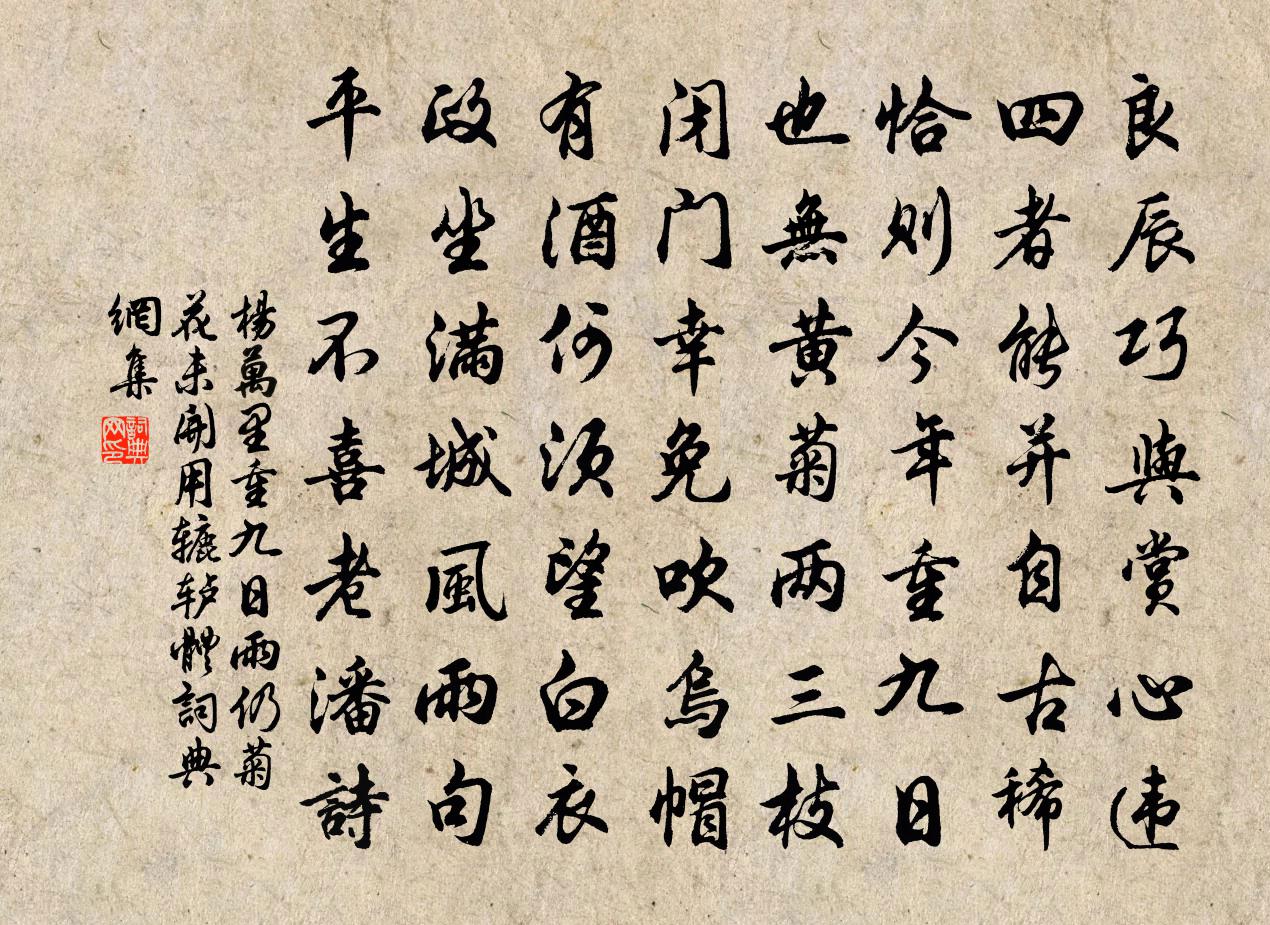 良辰巧與賞心违
四者能并自古稀
恰则今年重九日
也無黄菊两三枝
闭门幸免吹烏帽
有酒何须望白衣
政坐满城風雨句
平生不喜老潘詩
楊萬里重九日雨仍菊
花未開用辘轳體詞典
網集
詞典
网印